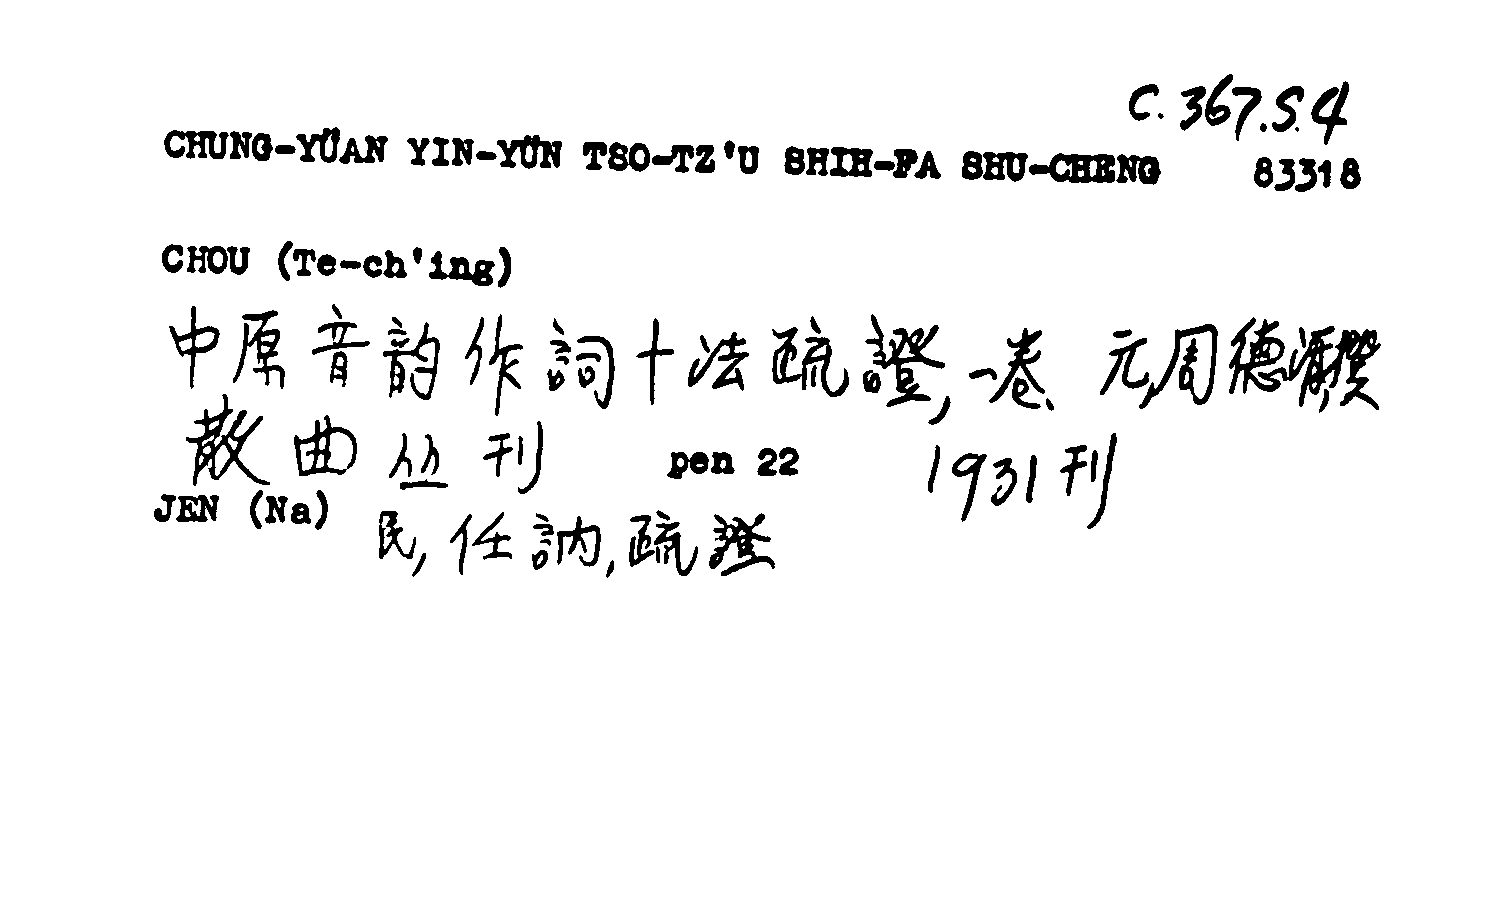 C. 367.S.4
CHUNG-YÜAN YIN-YÜN TSO-TZ'U SHIH-FA SHU-CHENG 83318
CHOU (Te-ch'ing)
中原音韵作詞十法疏證, 一卷、元,周德清撰
散曲丛刊 pen 22 1931刊
JEN (Na) 民, 任訥, 疏證